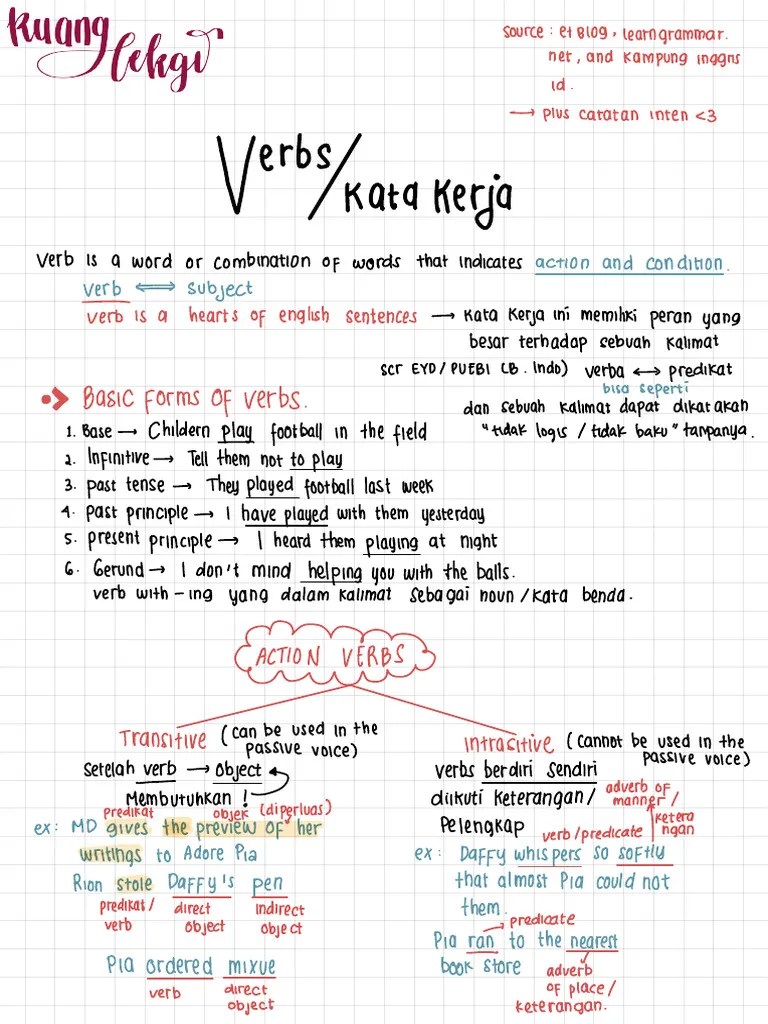 Ruang
lekgi
source : et Blog, learngrammar.
net, and Kampung inggris
id.
→ plus catatan inten <3
Verbs/
Kata Kerja
Verb is a word or combination of words that indicates action and condition.
verb ⟺ subject
verb is a hearts of english sentences → Kata Kerja ini memiliki peran yang
besar terhadap sebuah kalimat
scr EYD/PUEBI (B. Indo) verba ↔ predikat
bisa seperti
dan sebuah kalimat dapat dikatakan
"tidak logis / tidak baku" tanpanya.
Basic forms of verbs.
1. Base → Childern play football in the field
2. Infinitive → Tell them not to play
3. past tense → They played football last week
4. past principle → I have played with them yesterday
5. present principle → I heard them playing at night
6. Gerund → I don't mind helping you with the balls.
verb with -ing yang dalam kalimat sebagai noun/kata benda.
ACTION VERBS
Transitive (can be used in the
passive voice)
Setelah verb → object
Membutuhkan!
predikat objek (diperluas)
ex: MD gives the preview of her
writings to Adore Pia
Rion stole Daffy's pen
predikat/ direct indirect
verb object object
Pia ordered mixue
verb direct
object
Intrasitive (cannot be used in the
passive voice)
verbs berdiri sendiri
diikuti keterangan/ adverb of
manner/
Pelengkap verb/predicate ketera
ngan
ex: Daffy whispers so softly
that almost Pia could not
them.
predicate
Pia ran to the nearest
book store adverb
of place/
keterangan.